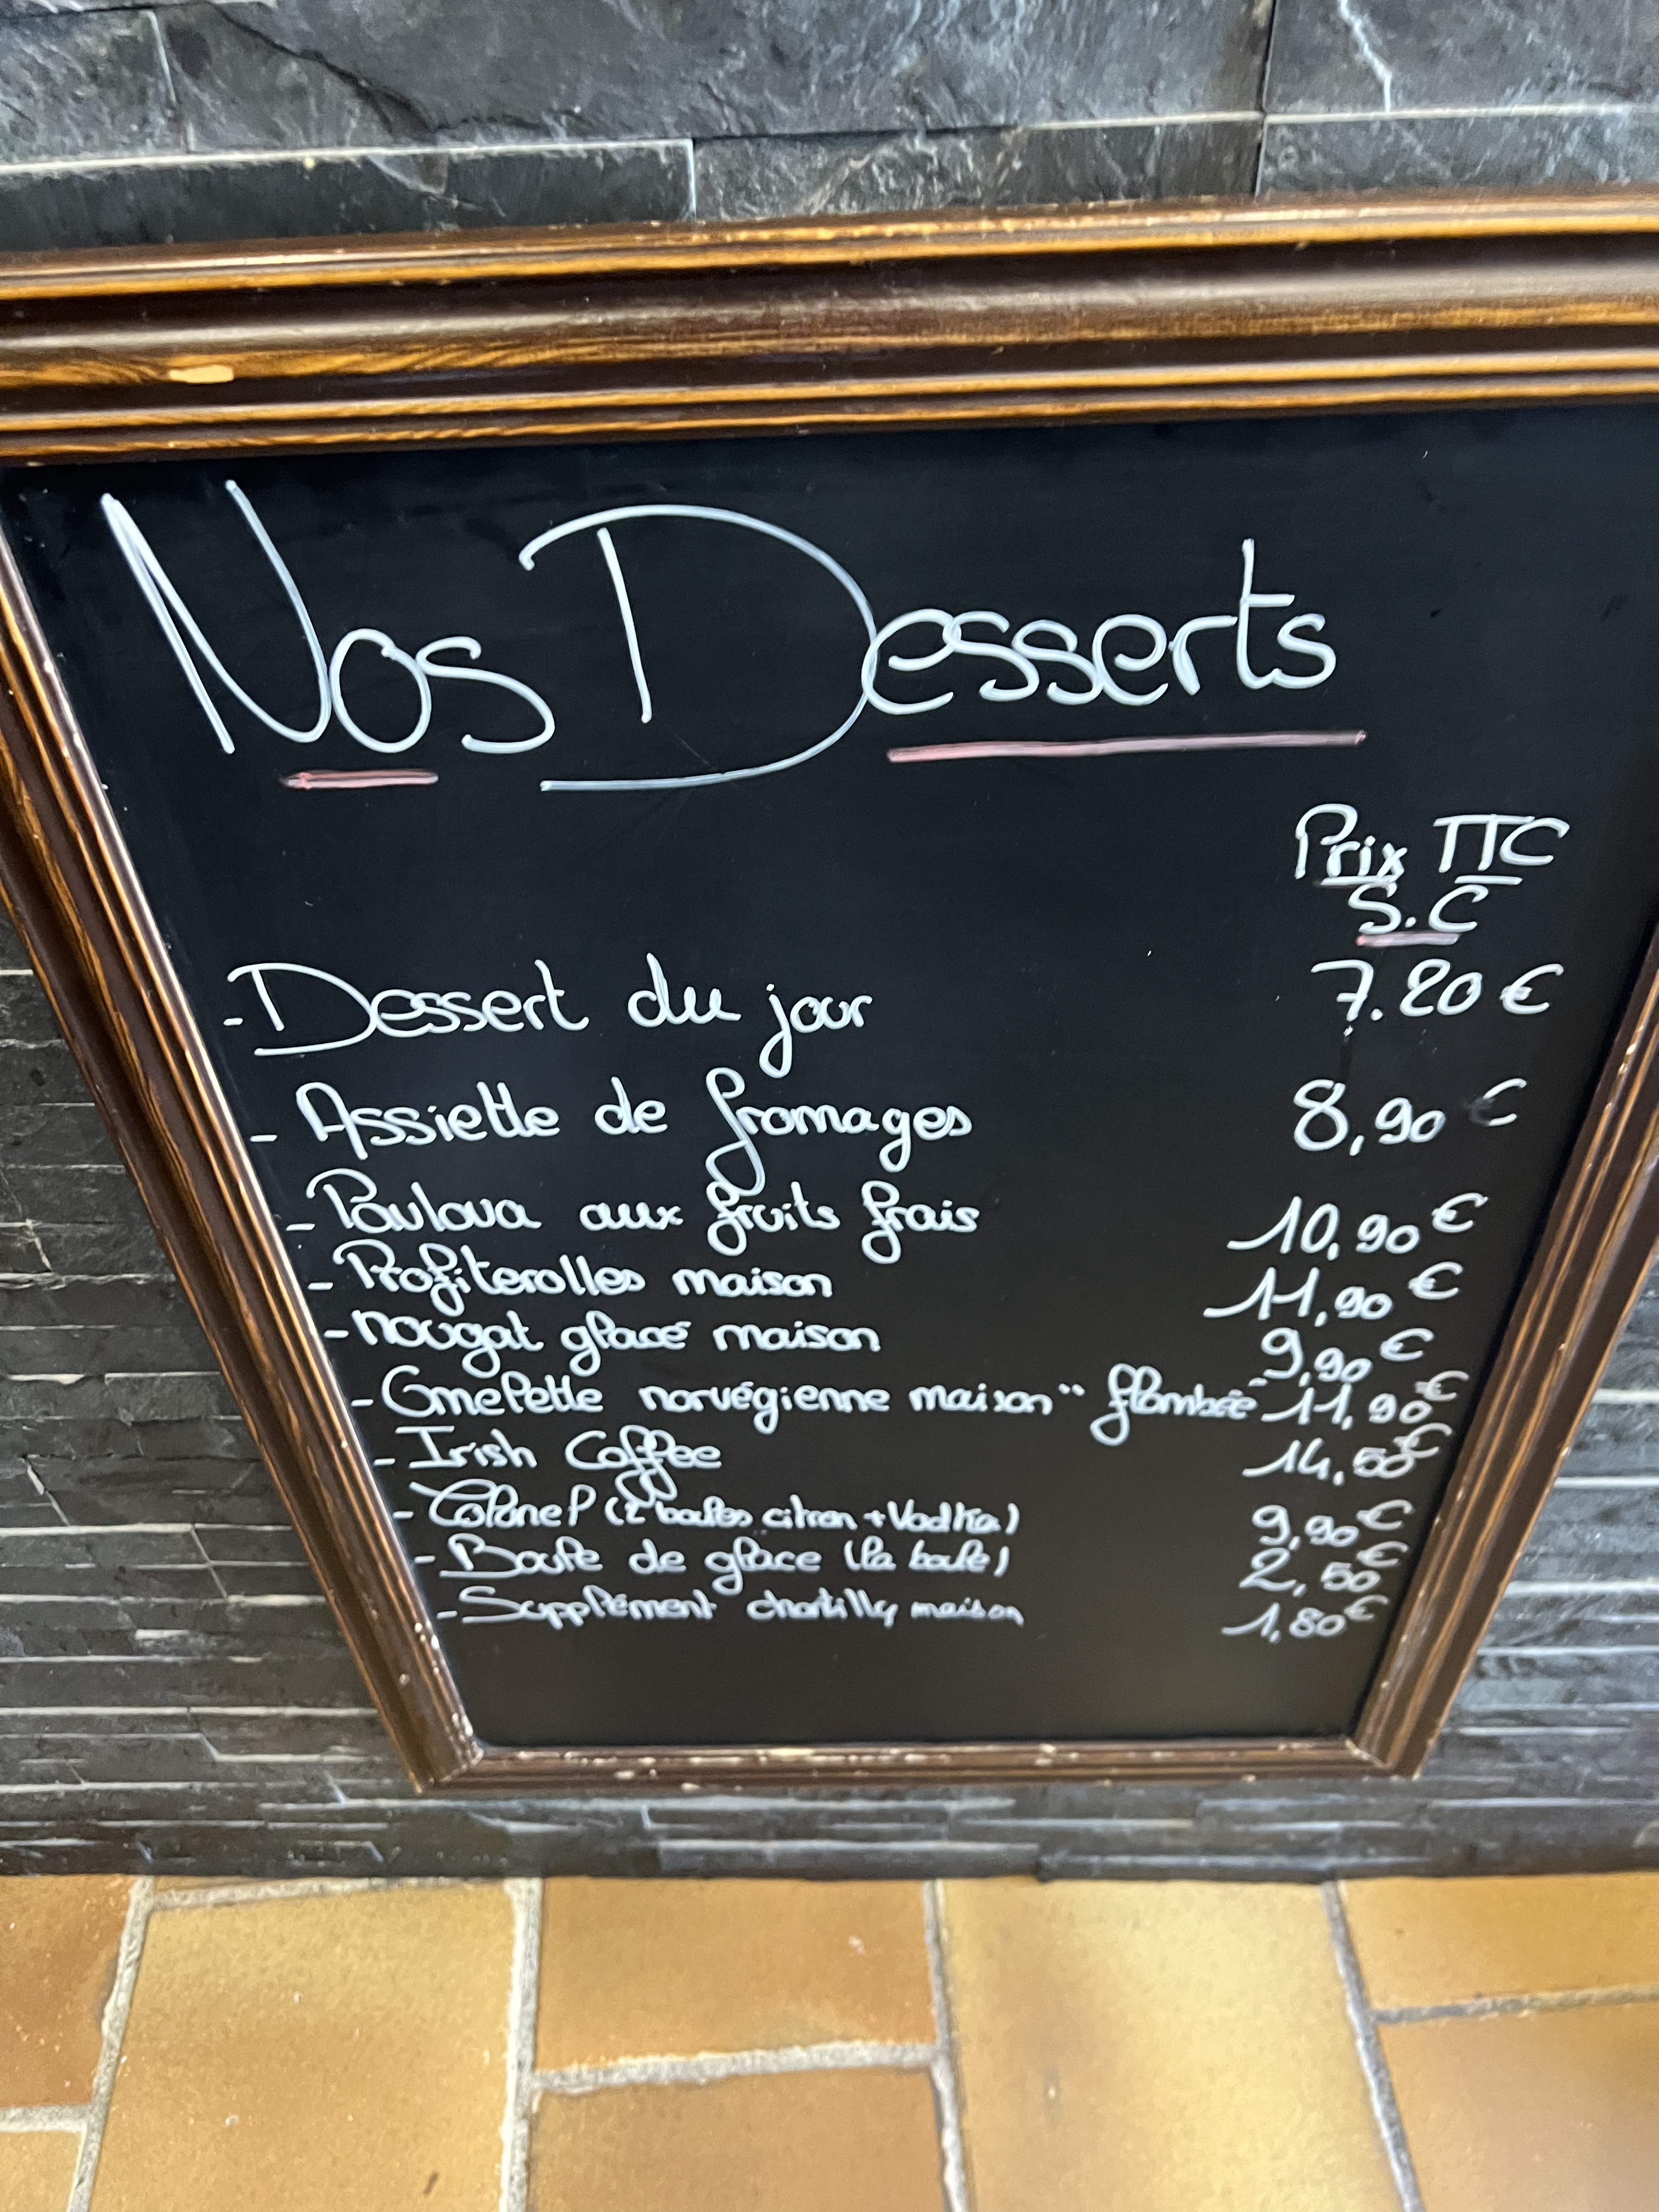 Nos Desserts
Prix TTC
S.C
- Dessert du jour 7.20 €
- Assiette de fromages 8,90 €
- Pavlova aux fruits frais 10,90 €
- Profiterolles maison 11,90 €
- Nougat glacé maison 9,90 €
- Omelette norvégienne maison " flambée " 11,90 €
- Irish Coffee 14,50 €
- Colonel (2 boules citron + Vodka) 9,90 €
- Boule de glace (la boule) 2,50 €
- Supplément chantilly maison 1,80 €